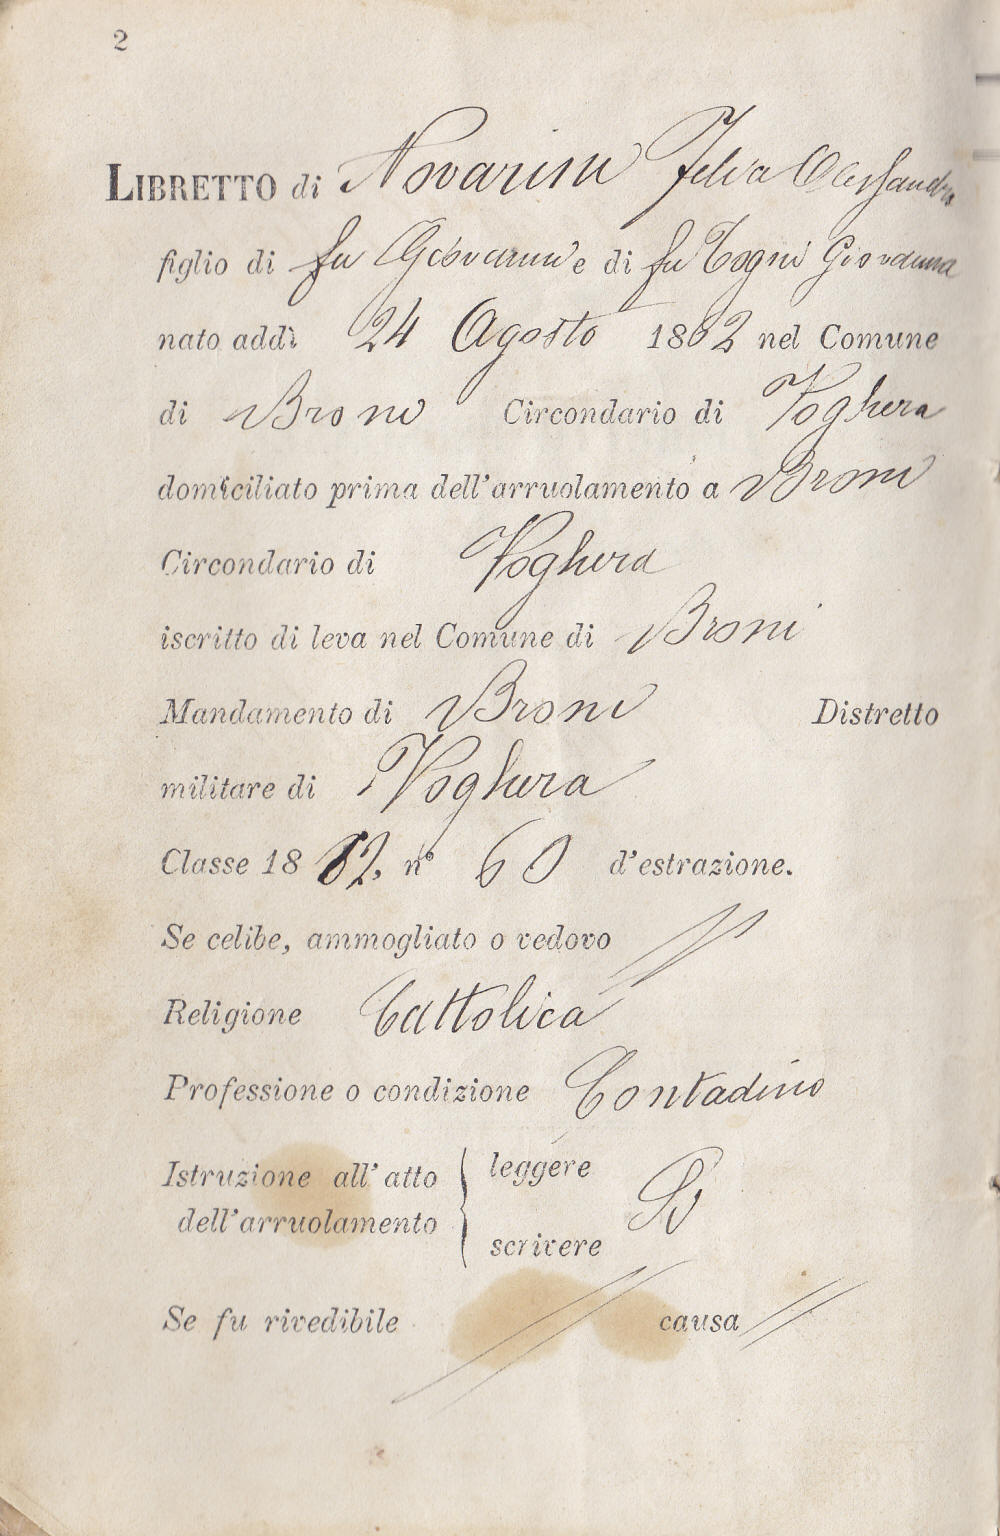 2
LIBRETTO di Novarini Felice Alessandro
figlio di fu Giovanni e di fu Togni Giovanna
nato addì 24 Agosto 1862 nel Comune
di Broni Circondario di Voghera
domiciliato prima dell'arruolamento a Broni
Circondario di Voghera
iscritto di leva nel Comune di Broni
Mandamento di Broni Distretto
militare di Voghera
Classe 1862, n° 60 d'estrazione.
Se celibe, ammogliato o vedovo //
Religione Cattolica
Professione o condizione Contadino
Istruzione all'atto dell'arruolamento { leggere scrivere Si
Se fu rivedibile // causa //